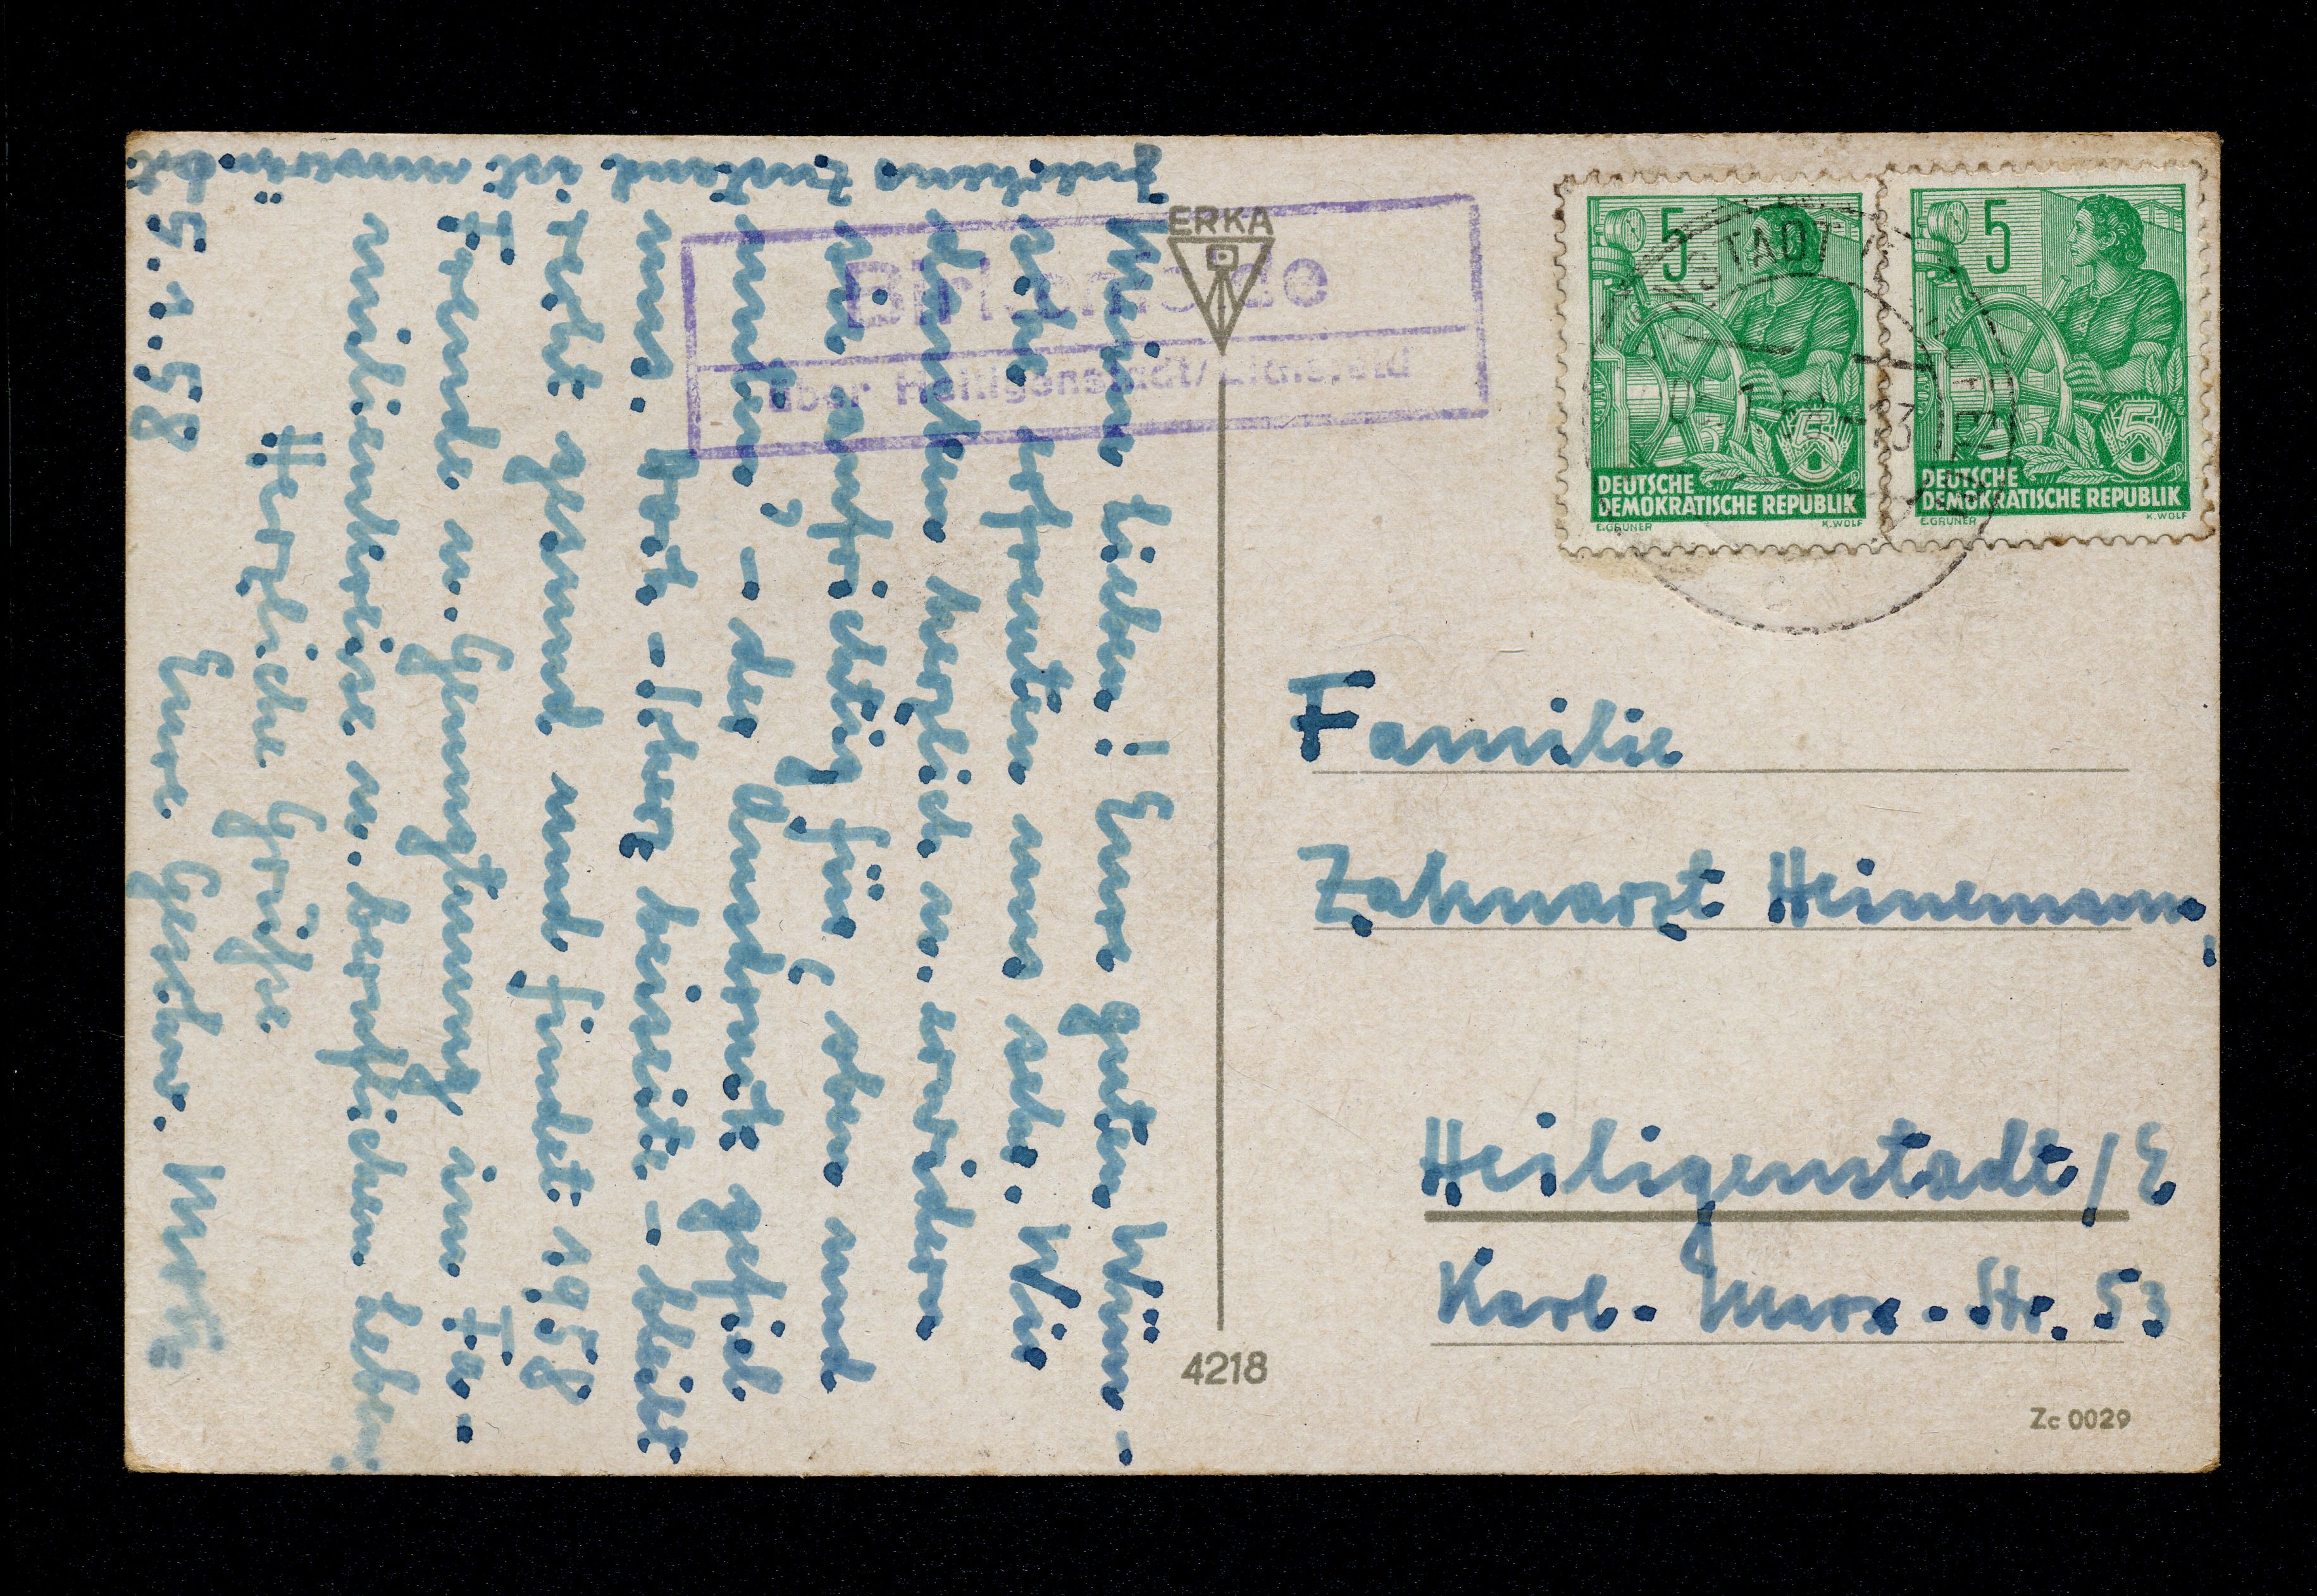 Meine Lieben! Eure guten Wün-
sche erfreuten uns sehr. Wir
danken herzlich u. erwidern
sie aufrichtig für „oben und
unten", – der Ausdruck gefiel
uns. Doch – Scherz beiseite – bleibt
recht gesund und findet 1958
Freude u. Genugtuung im Fa-
milienkreise u. beruflichen Leben
Herzliche Grüße
Eure Geschw.
5.1.58
Julchens Zustand ist unverändert.
Birkenfelde
über Heiligenstadt/Eichsfeld
ERKA
4218
5
5
DEUTSCHE
DEMOKRATISCHE REPUBLIK
E.GRUNER K.WOLF
5
5
DEUTSCHE
DEMOKRATISCHE REPUBLIK
E.GRUNER K.WOLF
Familie
Zahnarzt Heinemann,
Heiligenstadt/E
Karl-Marx-Str. 53
Zc 0029